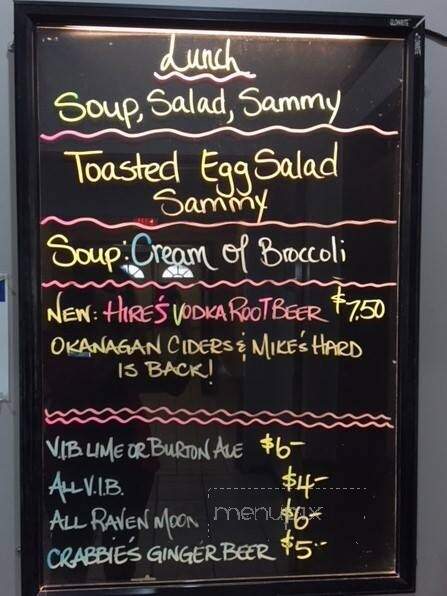 Lunch
Soup, Salad, Sammy
Toasted Egg Salad
Sammy
Soup: Cream of Broccoli
NEW: HIRE'S VODKA ROOT BEER $7.50
OKANAGAN CIDERS & MIKE'S HARD
IS BACK!
V.I.B. LIME OR BURTON ALE $6-
ALL V.I.B. $4-
ALL RAVEN MOON $6-
menupix
CRABBIE'S GINGER BEER $5-